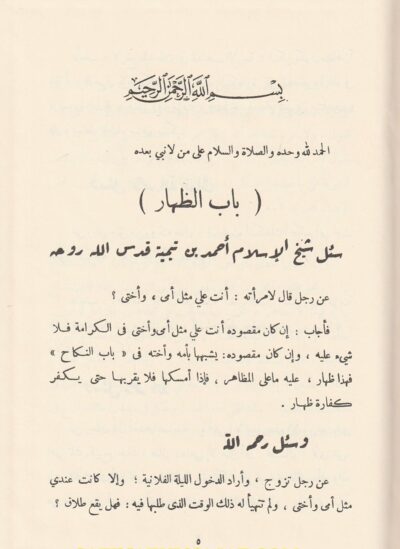 بسم الله الرحمن الرحيم
الحمد لله وحده والصلاة والسلام على من لا نبي بعده
( باب الظهار )
سئل شيخ الإسلام أحمد بن تيمية قدس الله روحه
عن رجل قال لامرأته : أنت علي مثل أمى ، وأختى ؟
فأجاب : إن كان مقصوده أنت علي مثل أمى وأختى فى الكرامة فلا
شيء عليه ، وإن كان مقصوده : يشبهها بأمه وأخته فى « باب النكاح »
فهذا ظهار ، عليه ما على المظاهر ، فإذا أمسكها فلا يقربها حتى يكفر
كفارة ظهار .
وسئل رحمه الله
عن رجل تزوج ، وأراد الدخول الليلة الفلانية ؛ وإلا كانت عندي
مثل أمى وأختى ، ولم تتهيأ له ذلك الوقت الذى طلبها فيه : فهل يقع طلاق ؟
٥